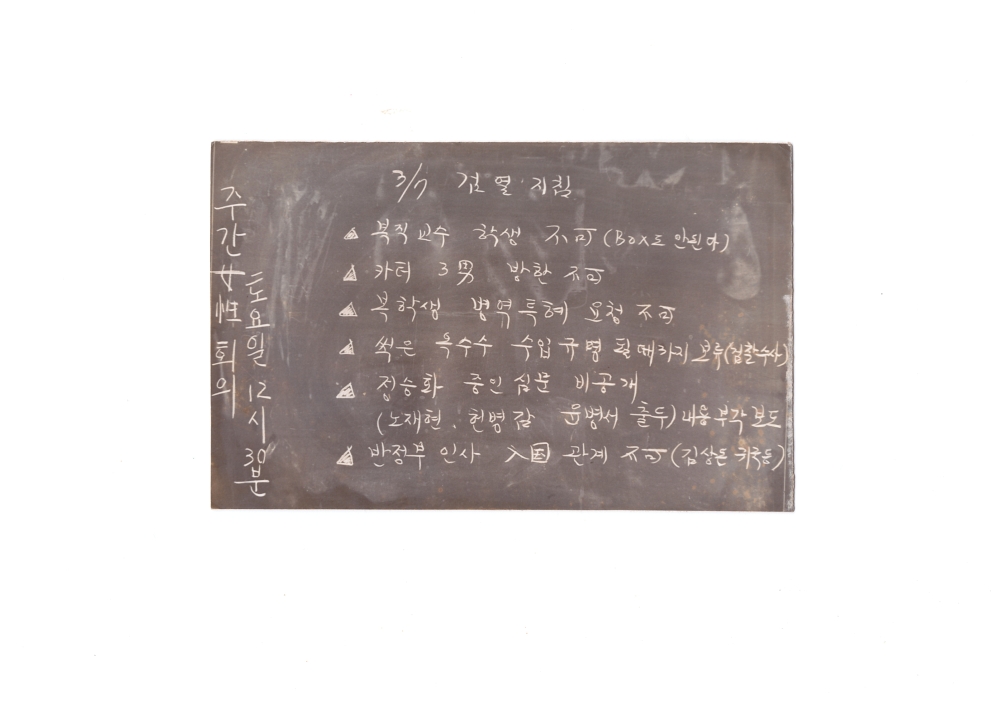 주간 女性 회의
토요일 12시 30분
3/7 검열 지침
복직교수 학생 不可 (Box도 안된다)
카터 3男 방한 不可
복학생 병역특혜 요청 不可
썩은 옥수수 수입 규명 될때까지 보류(검찰수사)
정승화 증인 심문 비공개
(노재현, 헌병감 윤병서 출두) 내용 부각 보도
반정부 인사 入国 관계 不可 (김상돈 귀국등)